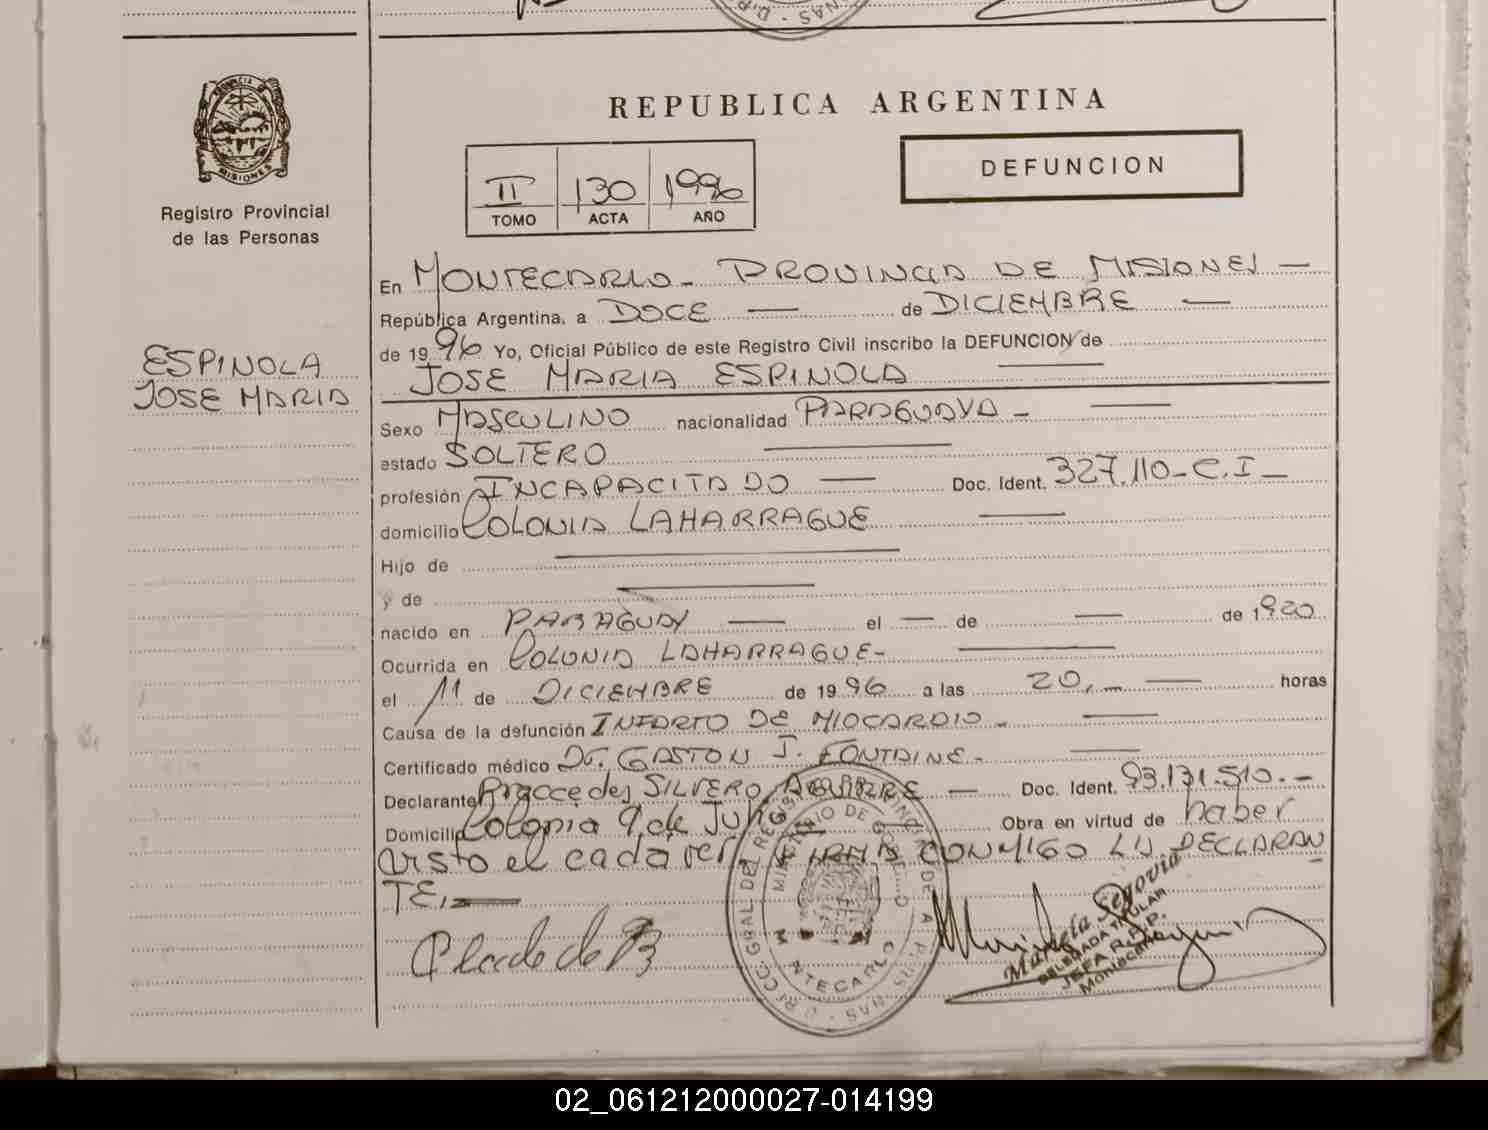 REPUBLICA ARGENTINA
DEFUNCION
II 130 1996
TOMO ACTA AÑO
MISIONES
Registro Provincial
de las Personas
En MONTECARLO - PROVINCIA DE MISIONES —
República Argentina, a DOCE — de DICIEMBRE —
de 1996 Yo, Oficial Público de este Registro Civil inscribo la DEFUNCION de
JOSE MARIA ESPINOLA —
ESPINOLA
JOSE MARIA
Sexo MASCULINO nacionalidad PARAGUAYA - —
estado SOLTERO —
profesión INCAPACITADO — Doc. Ident. 327.110-C.I -
domicilio COLONIA LAHARRAGUE —
Hijo de —
y de —
nacido en PARAGUAY — el — de — de 1920
Ocurrida en COLONIA LAHARRAGUE- —
el 11 de DICIEMBRE de 1996 a las 20,- — horas
Causa de la defunción INFARTO DE MIOCARDIO - —
Certificado médico DR. GASTON J. FONTAINE - —
Declarante SILVERO AGUIRRE — Doc. Ident. 93.131.510.-
Domicilio Colonia 9 de Julio — Obra en virtud de haber
visto el cadáver. FIRMA CONMIGO LA DECLARAN
TE.—
MONTECARLO
Mariela Segovia
DELEGADA TITULAR
JEFA R.P.P.
Montecarlo
02_061212000027-014199